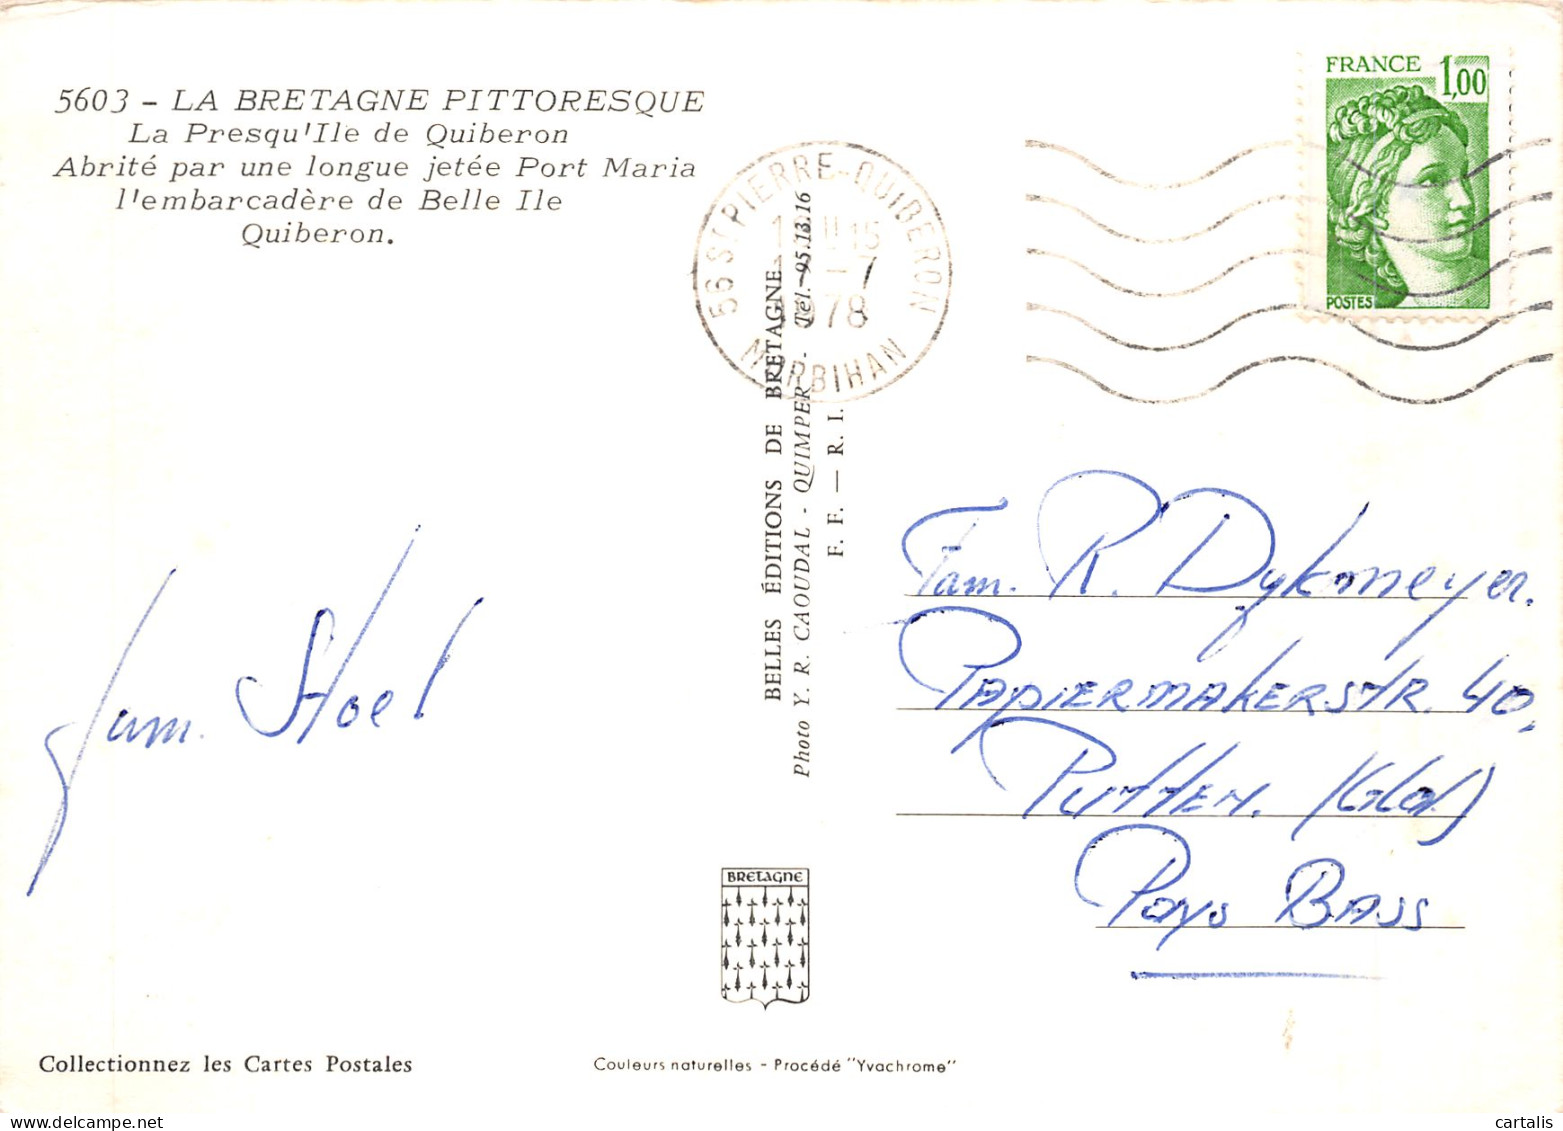 5603 - LA BRETAGNE PITTORESQUE
La Presqu'Ile de Quiberon
Abrité par une longue jetée Port Maria
l'embarcadère de Belle Ile
Quiberon.
56 ST PIERRE-QUIBERON
15
-7
1978
MORBIHAN
FRANCE 1,00
POSTES
BELLES ÉDITIONS DE BRETAGNE
Photo Y. R. CAOUDAL - QUIMPER - Tél. 95.13.16
F. F. — R. I.
Fam. Stoel
Fam. R. Dykmeyer.
PAPIERMAKERSTR. 40.
PUTTEN. (Gld)
Pays BASS
BRETAGNE
Collectionnez les Cartes Postales
Couleurs naturelles - Procédé "Yvachrome"
cartalis